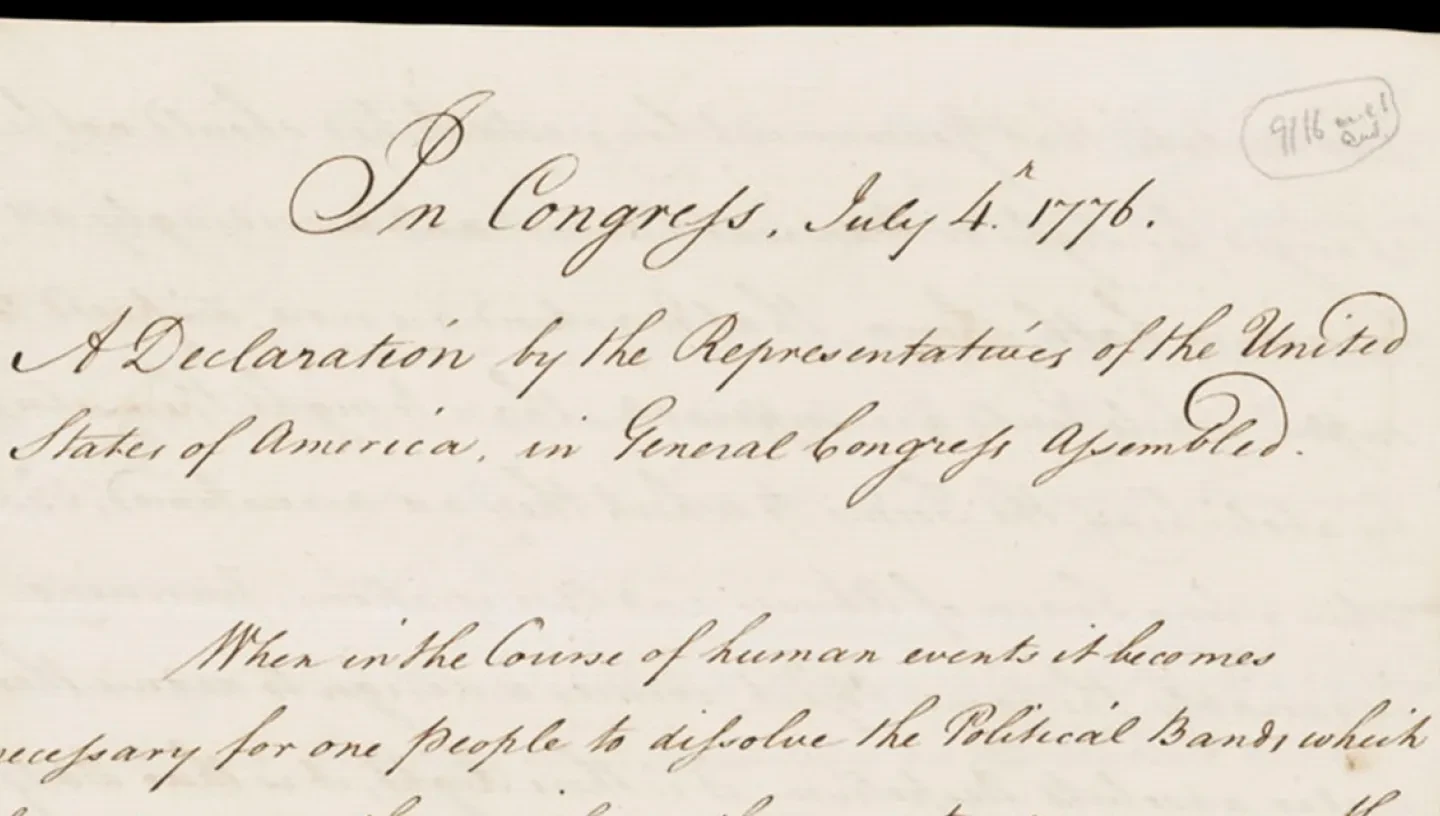 In Congress, July 4. 1776.
A Declaration by the Representatives of the United
States of America, in General Congress Assembled.
When in the Course of human events it becomes
necessary for one people to dissolve the Political Bands which